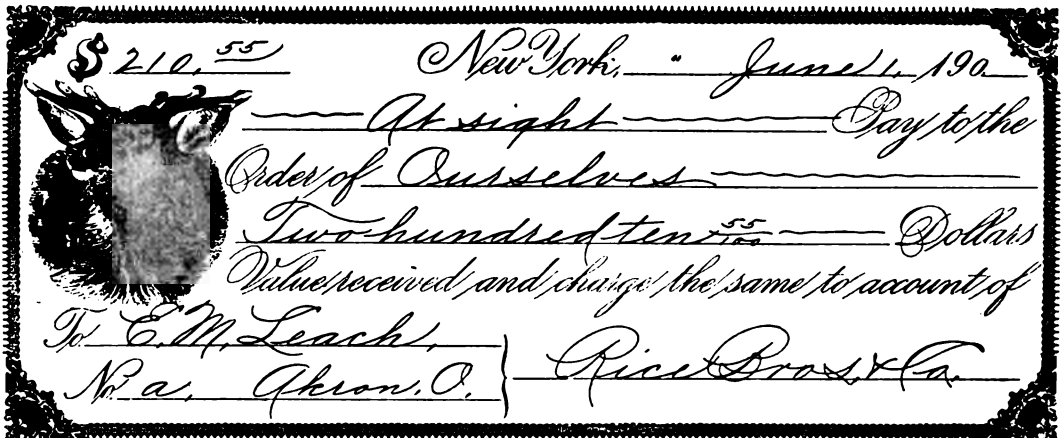 $ 210.55 New York, " June 1, 190
At sight Pay to the
Order of Ourselves
Two hundred ten 55/100 Dollars
Value received and charge the same to account of
To E. M. Leach,
No. a. Akron. O. Rice Bros. & Co.